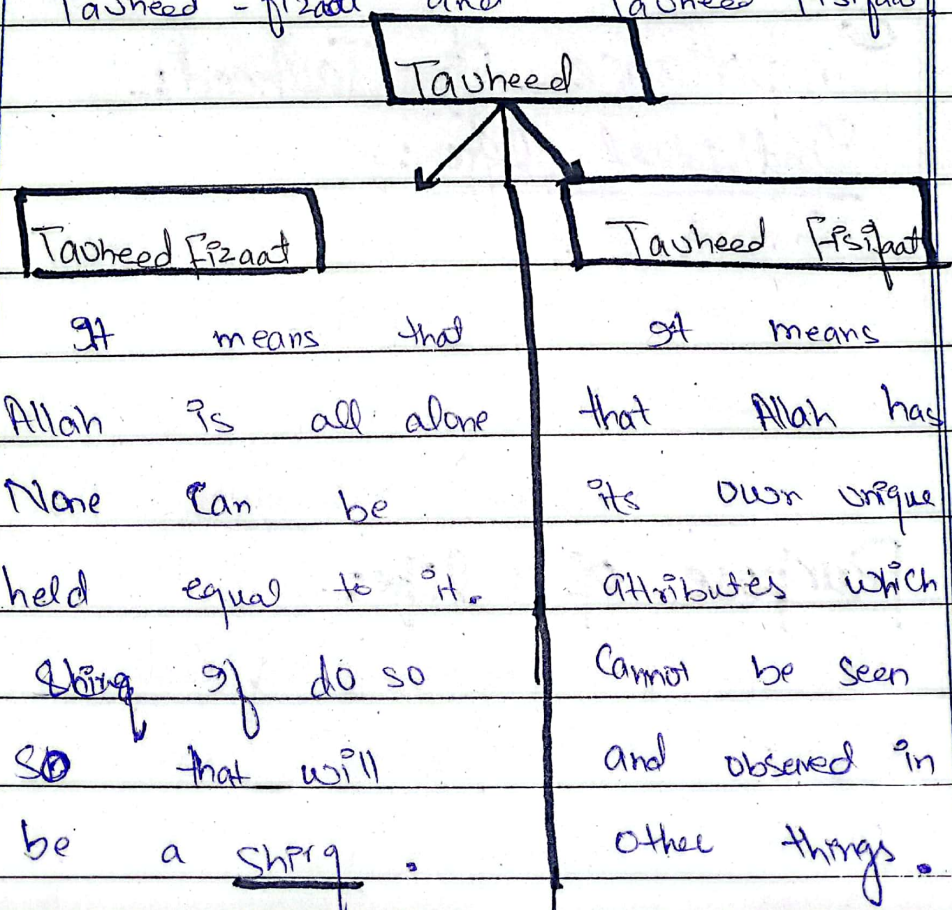 Tauheed - fizaat and Tauheed Fisifaat
Tauheed
Tauheed Fizaat
It means that
Allah is all alone
None Can be
held equal to it.
If do so
so that will
be a Shirq.
Tauheed Fisifaat
It means
that Allah has
its own unique
attributes which
Cannot be seen
and obseved in
other things.